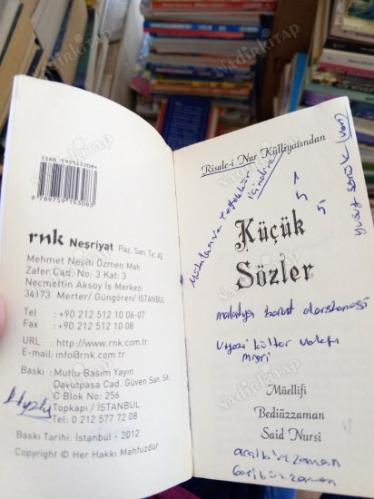 ISBN
9789759153083
rnk Neşriyat Paz. San. Tic. AŞ
Mehmet Nesihi Özmen Mah.
Zafer Cad. No: 3 Kat: 3
Necmettin Aksoy İş Merkezi
34173 Merter/ Güngören/ İSTANBUL
Tel : +90 212 512 10 06-07
Fax : +90 212 512 10 08
URL : http://www.rnk.com.tr
E-mail: info@rnk.com.tr
Baskı : Mutlu Basım Yayın
Davutpaşa Cad. Güven San. Sit.
C Blok No: 256
Topkapı / İSTANBUL
Tel: 0 212 577 72 08
Baskı Tarihi: İstanbul - 2012
Copyright © Her Hakkı Mahfuzdur
Risale-i Nur Külliyatından
Küçük
Sözler
malatya
kültür vakfı
Müellifi
Bediüzzaman
Said Nursi
vadinkitap